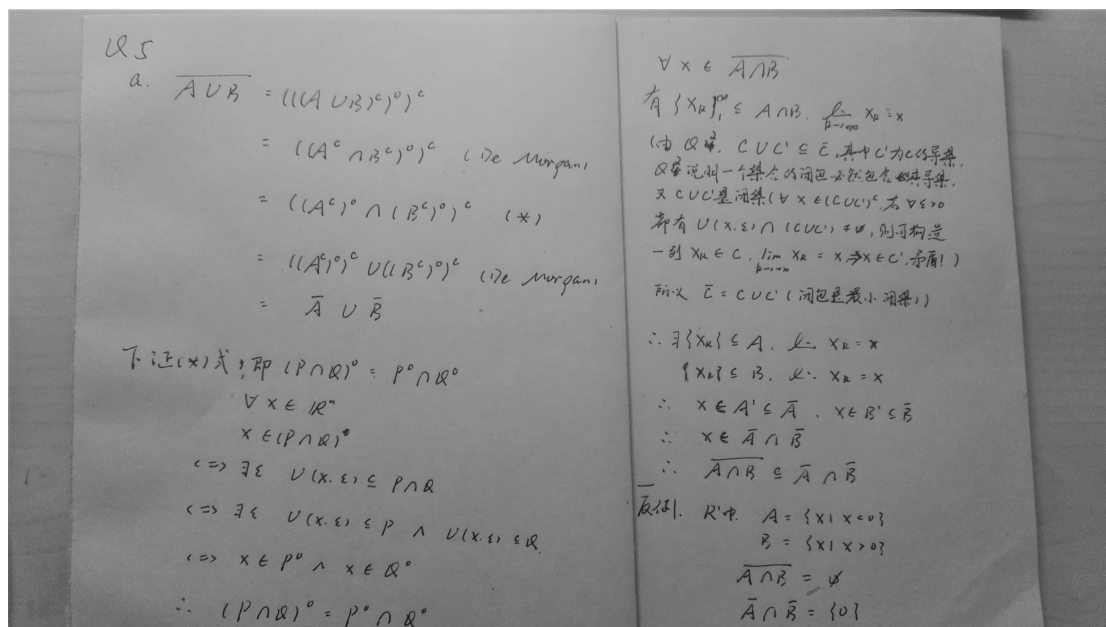 Q5
a. $\overline{A \cup B}$ = (((A ∪ B)ᶜ)⁰)ᶜ
= ((Aᶜ ∩ Bᶜ)⁰)ᶜ (De Morgan)
= ((Aᶜ)⁰ ∩ (Bᶜ)⁰)ᶜ (*)
= ((Aᶜ)⁰)ᶜ ∪ ((Bᶜ)⁰)ᶜ (De Morgan)
= Ā ∪ B̄
下证(*)式,即 (P∩Q)⁰ = P⁰∩Q⁰
∀ x ∈ ℝⁿ
x ∈ (P∩Q)⁰
<=> ∃ε U(x.ε) ⊆ P∩Q
<=> ∃ε U(x.ε) ⊆ P ∧ U(x.ε) ⊆ Q
<=> x ∈ P⁰ ∧ x ∈ Q⁰
∴ (P∩Q)⁰ = P⁰ ∩ Q⁰
∀ x ∈ $\overline{A∩B}$
有 {xₖ}₁^∞ ⊆ A∩B. lim_{k→∞} xₖ = x
(由 Q, C∪C' ⊆ C̄, 其中C'为C的导集,
说明一个集合的闭包必然包含其导集,
又 C∪C'是闭集(∀ x ∈ (C∪C')ᶜ, 若 ∀ε>0
都有 U(x.ε) ∩ (C∪C') ≠ ∅, 则可构造
一列 xₖ ∈ C, lim_{k→∞} xₖ = x ⇒ x ∈ C', 矛盾!)
所以 C̄ = C∪C' (闭包是最小闭集))
∴ ∃{xₖ} ⊆ A. lim xₖ = x
{xₖ} ⊆ B. lim xₖ = x
∴ x ∈ A' ⊆ Ā, x ∈ B' ⊆ B̄
∴ x ∈ Ā ∩ B̄
∴ $\overline{A∩B}$ ⊆ Ā ∩ B̄
反例. R'中. A = {x | x<0}
B = {x | x>0}
$\overline{A∩B}$ = ∅
Ā ∩ B̄ = {0}